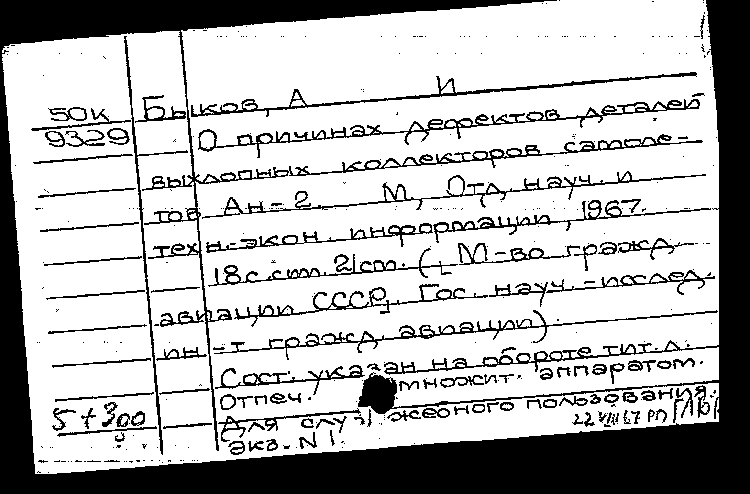 50К Быков, А И
9329 О причинах дефектов деталей
выхлопных коллекторов самоле-
тов Ан-2. М, Отд. науч. и
техн.-экон. информации, 1967.
18с. ст. 21см. ([М-во гражд.
авиации СССР]. Гос. науч.-исслед.
ин-т гражд. авиации).
Сост. указан на обороте тит. л.
Отпеч. множит. аппаратом.
5+300 Для служебного пользования.
экз. N1. 22 VIII 67